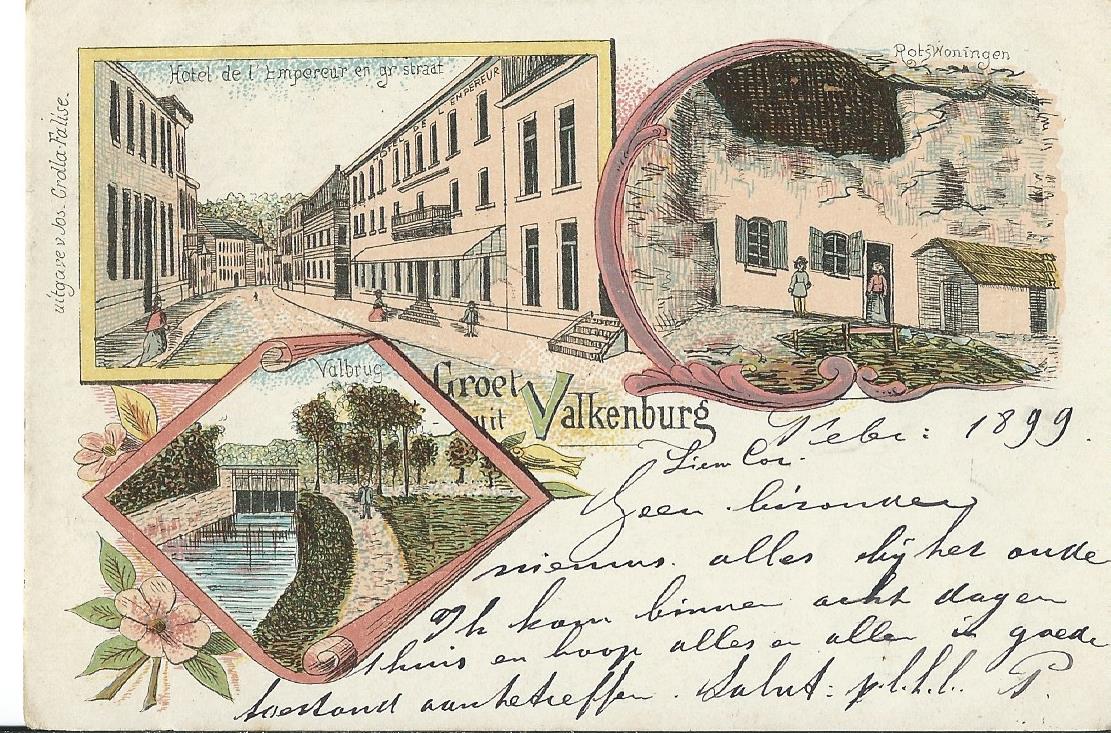 Hotel de l'Empereur en gr straat
HOTEL DE L'EMPEREUR
uitgave v. Jos. Crolla-Falise.
RotsWoningen
Valbrug
Groet
uit Valkenburg
Febr: 1899.
Lieve Cor.
Geen bizonder
nieuws. alles bij het oude
Ik kom binnen acht dagen
thuis en hoop alles en allen in goede
toestand aantetreffen. Salut: p.l.h.l. P.